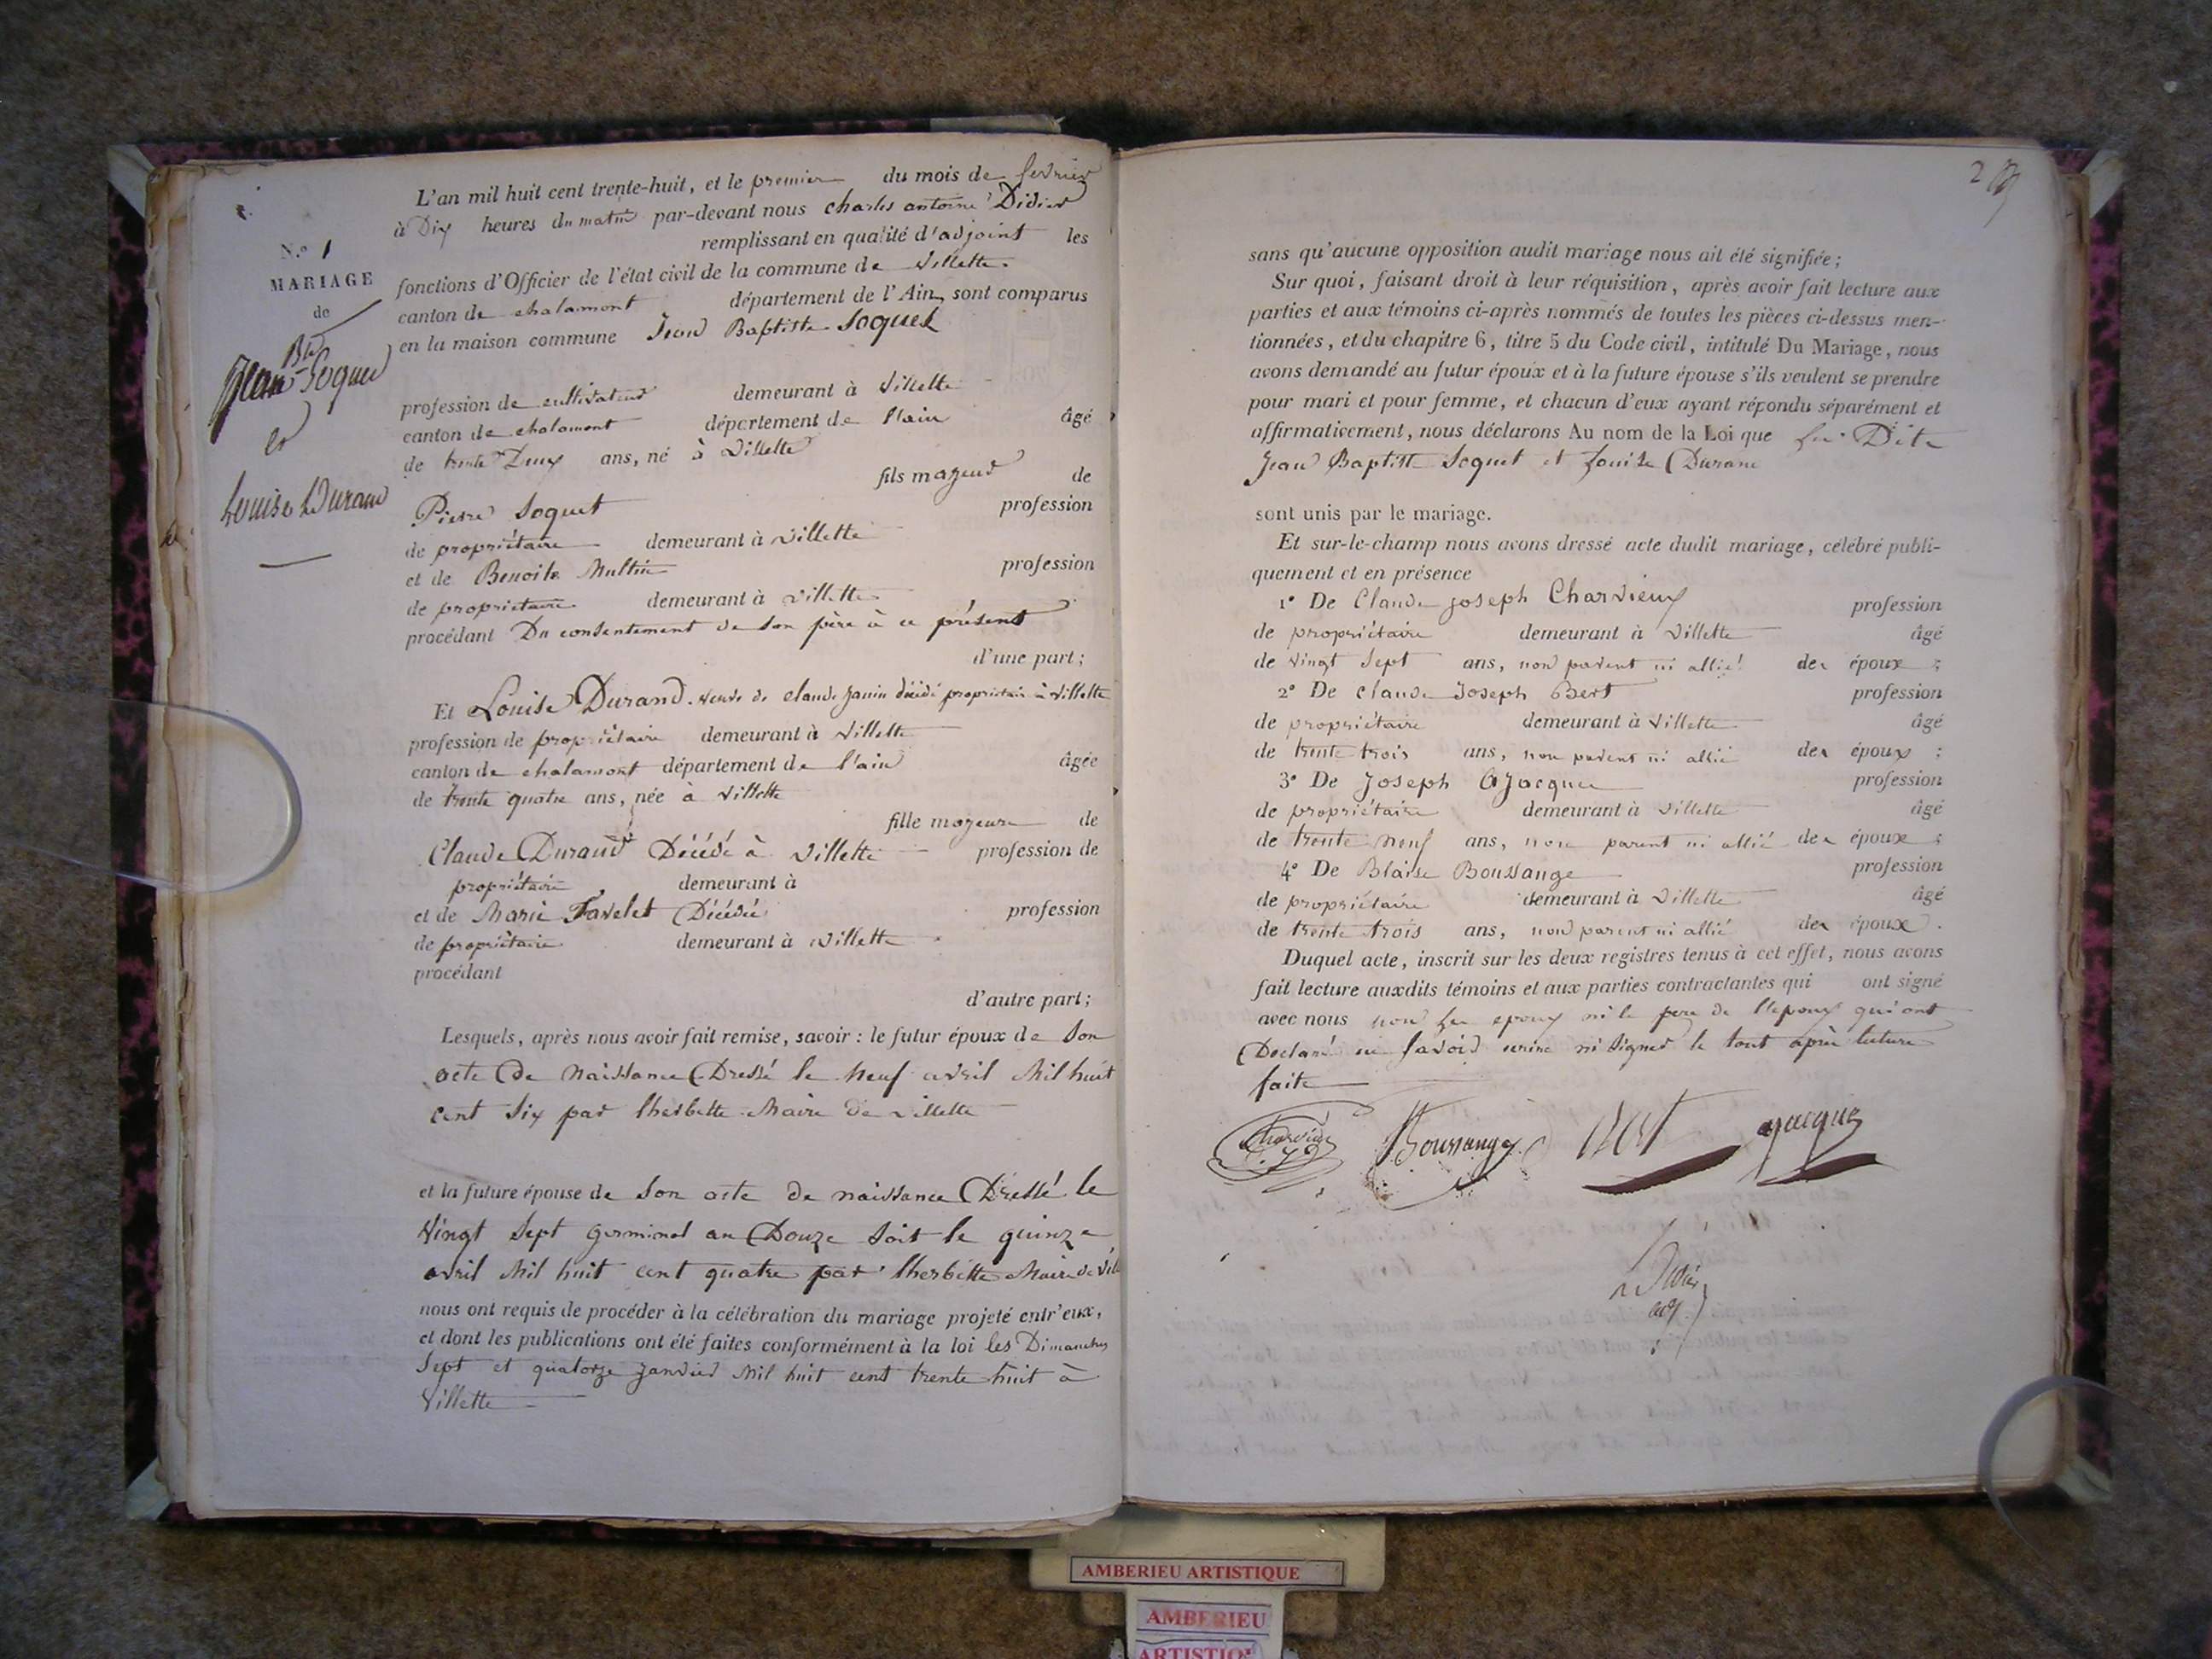 L'an mil huit cent trente-huit, et le premier du mois de fevrier
à Dix heures du matin par-devant nous charles antoine Didier
remplissant en qualité d'adjoint les
fonctions d'Officier de l'état civil de la commune de Villette
canton de chalamont département de l'Ain, sont comparus
en la maison commune Jean Baptiste Soquet
N.º 1
MARIAGE
de
Jean Bte Soquet
et
Louise Durand
profession de cultivateur demeurant à Villette
canton de chalamont département de l'ain âgé
de trente Deux ans, né à Villette
fils majeur de
Pierre Soquet profession
de propriétaire demeurant à Villette
et de Benoite profession
de propriétaire demeurant à Villette
procédant Du consentement de son père à ce présent
d'une part;
Et Louise Durand veuve de claude Janin décédé propriétaire à Villette
profession de propriétaire demeurant à Villette
canton de chalamont département de l'ain âgée
de trente quatre ans, née à Villette
fille majeure de
Claude Durand Décédé à Villette profession de
propriétaire demeurant à
et de Marie Favelet Décédée profession
de propriétaire demeurant à Villette
procédant
d'autre part;
Lesquels, après nous avoir fait remise, savoir : le futur époux de Son
acte de Naissance Dressé le Neuf avril Mil huit
cent Six par lherbette Maire de Villette
et la future épouse de Son acte de naissance Dressé le
Vingt Sept germinal an Douze Soit le quinze
avril Mil huit cent quatre par lherbette Maire de Vill
nous ont requis de procéder à la célébration du mariage projeté entr'eux,
et dont les publications ont été faites conformément à la loi les Dimanches
Sept et quatorze Janvier Mil huit cent trente huit à
Villette
2
sans qu'aucune opposition audit mariage nous ait été signifiée;
Sur quoi, faisant droit à leur réquisition, après avoir fait lecture aux
parties et aux témoins ci-après nommés de toutes les pièces ci-dessus men-
tionnées, et du chapitre 6, titre 5 du Code civil, intitulé Du Mariage, nous
avons demandé au futur époux et à la future épouse s'ils veulent se prendre
pour mari et pour femme, et chacun d'eux ayant répondu séparément et
affirmativement, nous déclarons Au nom de la Loi que Les Dits
Jean Baptiste Soquet et Louise Durand
sont unis par le mariage.
Et sur-le-champ nous avons dressé acte dudit mariage, célébré publi-
quement et en présence
1º De Claude Joseph Charvieux profession
de propriétaire demeurant à Villette âgé
de vingt Sept ans, non parent ni allié des époux ;
2º De Claude Joseph Bert profession
de propriétaire demeurant à Villette âgé
de trente trois ans, non parent ni allié des époux ;
3º De Joseph Ajacques profession
de propriétaire demeurant à Villette âgé
de trente Neuf ans, non parent ni allié des époux ;
4º De Blaise Boussange profession
de propriétaire demeurant à Villette âgé
de trente trois ans, non parent ni allié des époux.
Duquel acte, inscrit sur les deux registres tenus à cet effet, nous avons
fait lecture auxdits témoins et aux parties contractantes qui ont signé
avec nous non Les epoux ni le pere de l'epoux qui ont
Declaré ne Savoir ecrire ni Signer le tout après lecture
faite
Charvieux Boussange Bert ajacques
Didier
adj.
AMBERIEU ARTISTIQUE
AMBERIEU
ARTISTIQUE